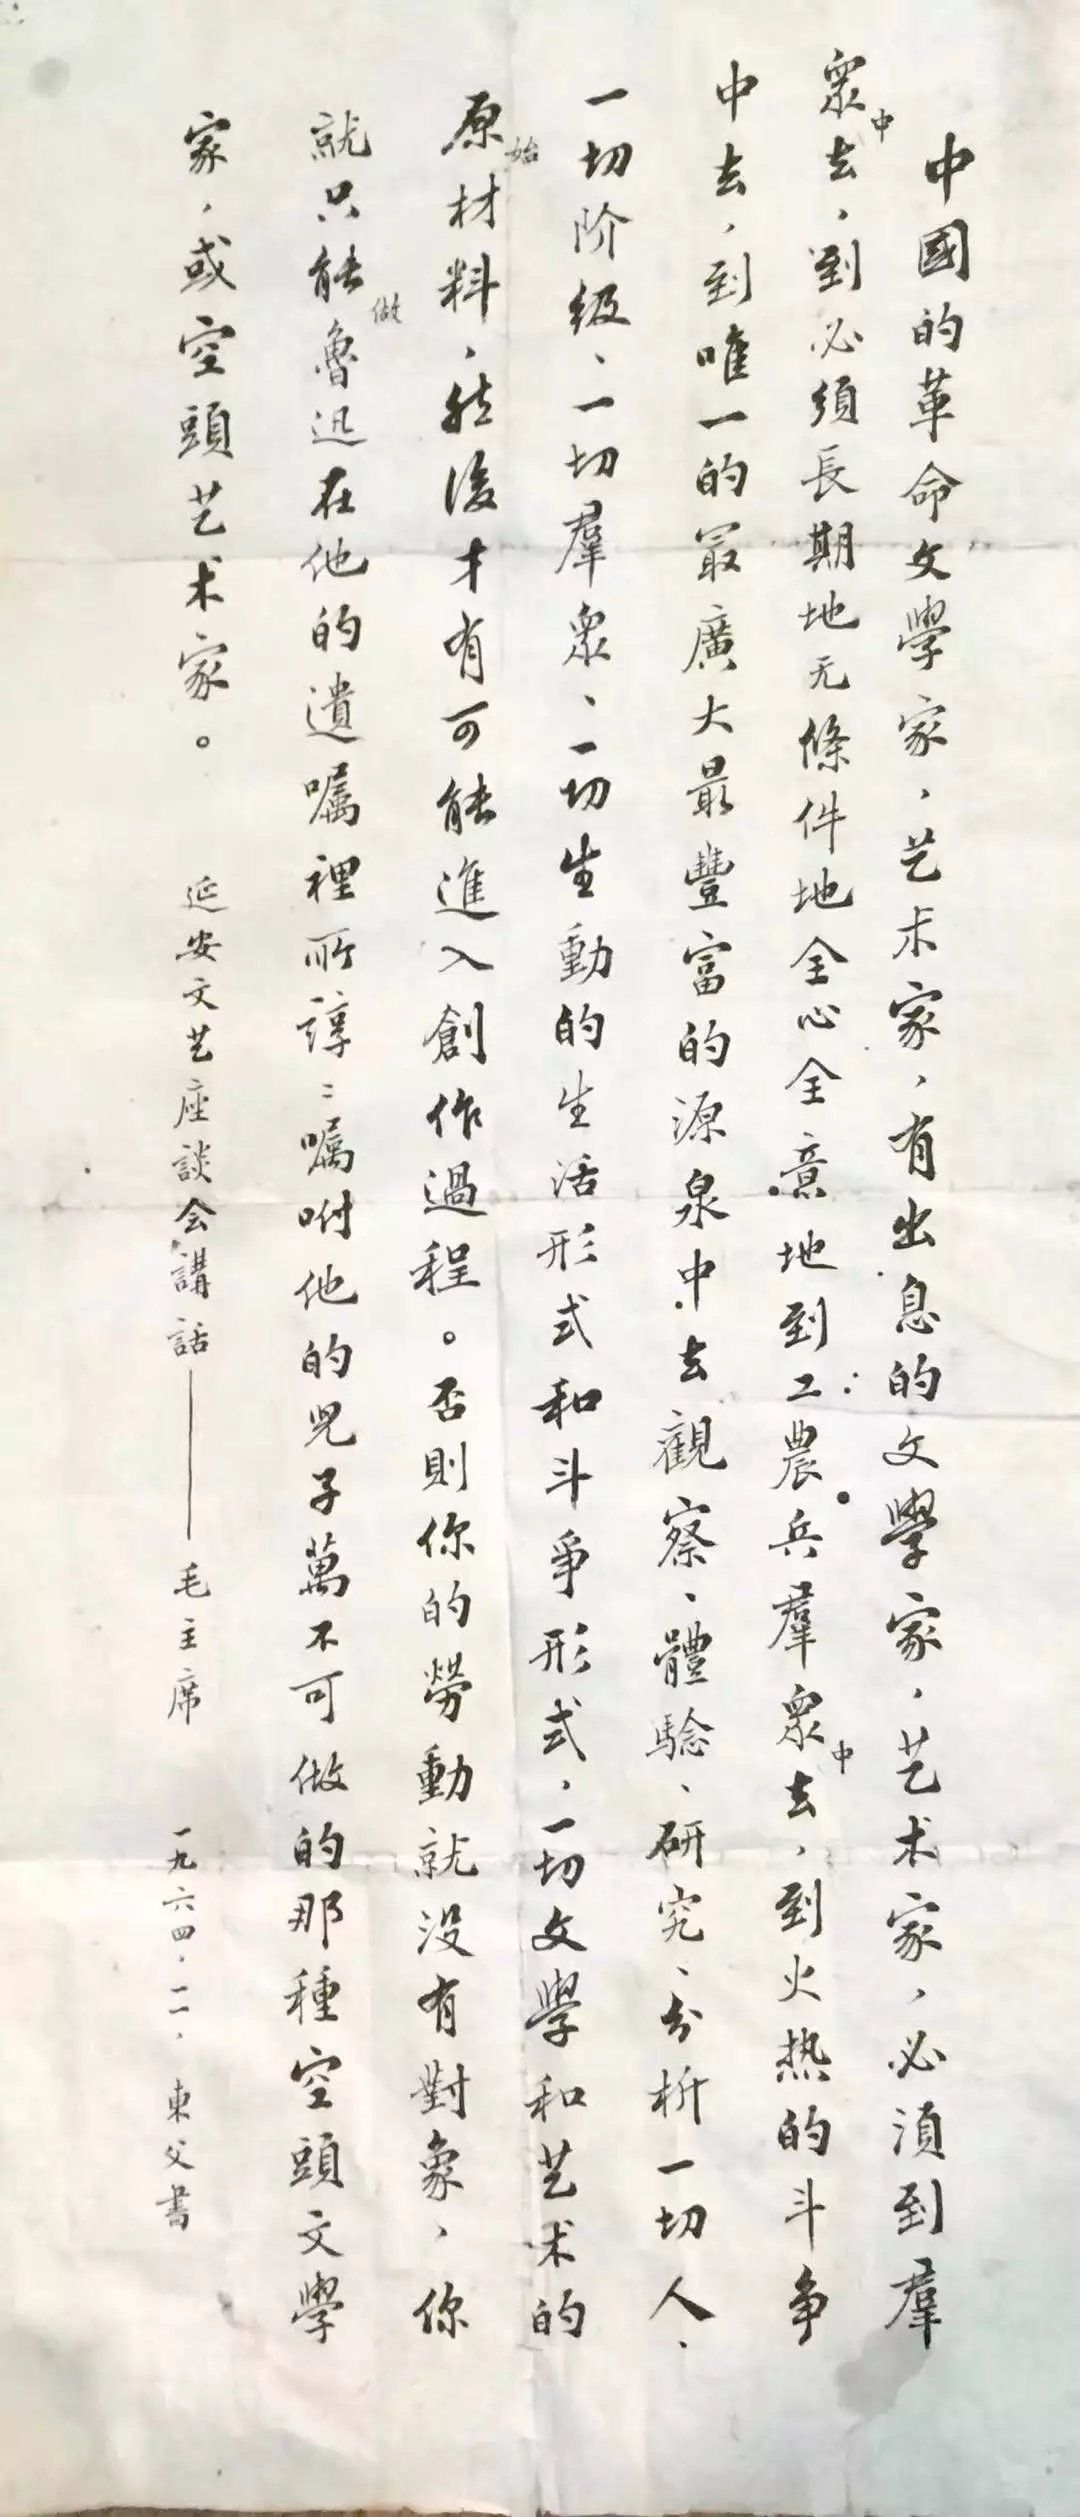 中國的革命文學家，艺术家，有出息的文學家，艺术家，必須到羣
衆中去，到必須長期地无條件地全心全意地到工農兵羣衆中去，到火热的斗争
中去，到唯一的最廣大最豐富的源泉中去觀察、體驗、研究、分析一切人、
一切阶级、一切羣衆、一切生動的生活形式和斗爭形式，一切文學和艺术的
原始材料，然後才有可能進入創作過程。否則你的勞動就没有對象，你
就只能做魯迅在他的遺嘱裡所諄〻嘱咐他的兒子萬不可做的那種空頭文學
家，或空頭艺术家。 延安文艺座談会講話——毛主席 一九六四．一一．東父書